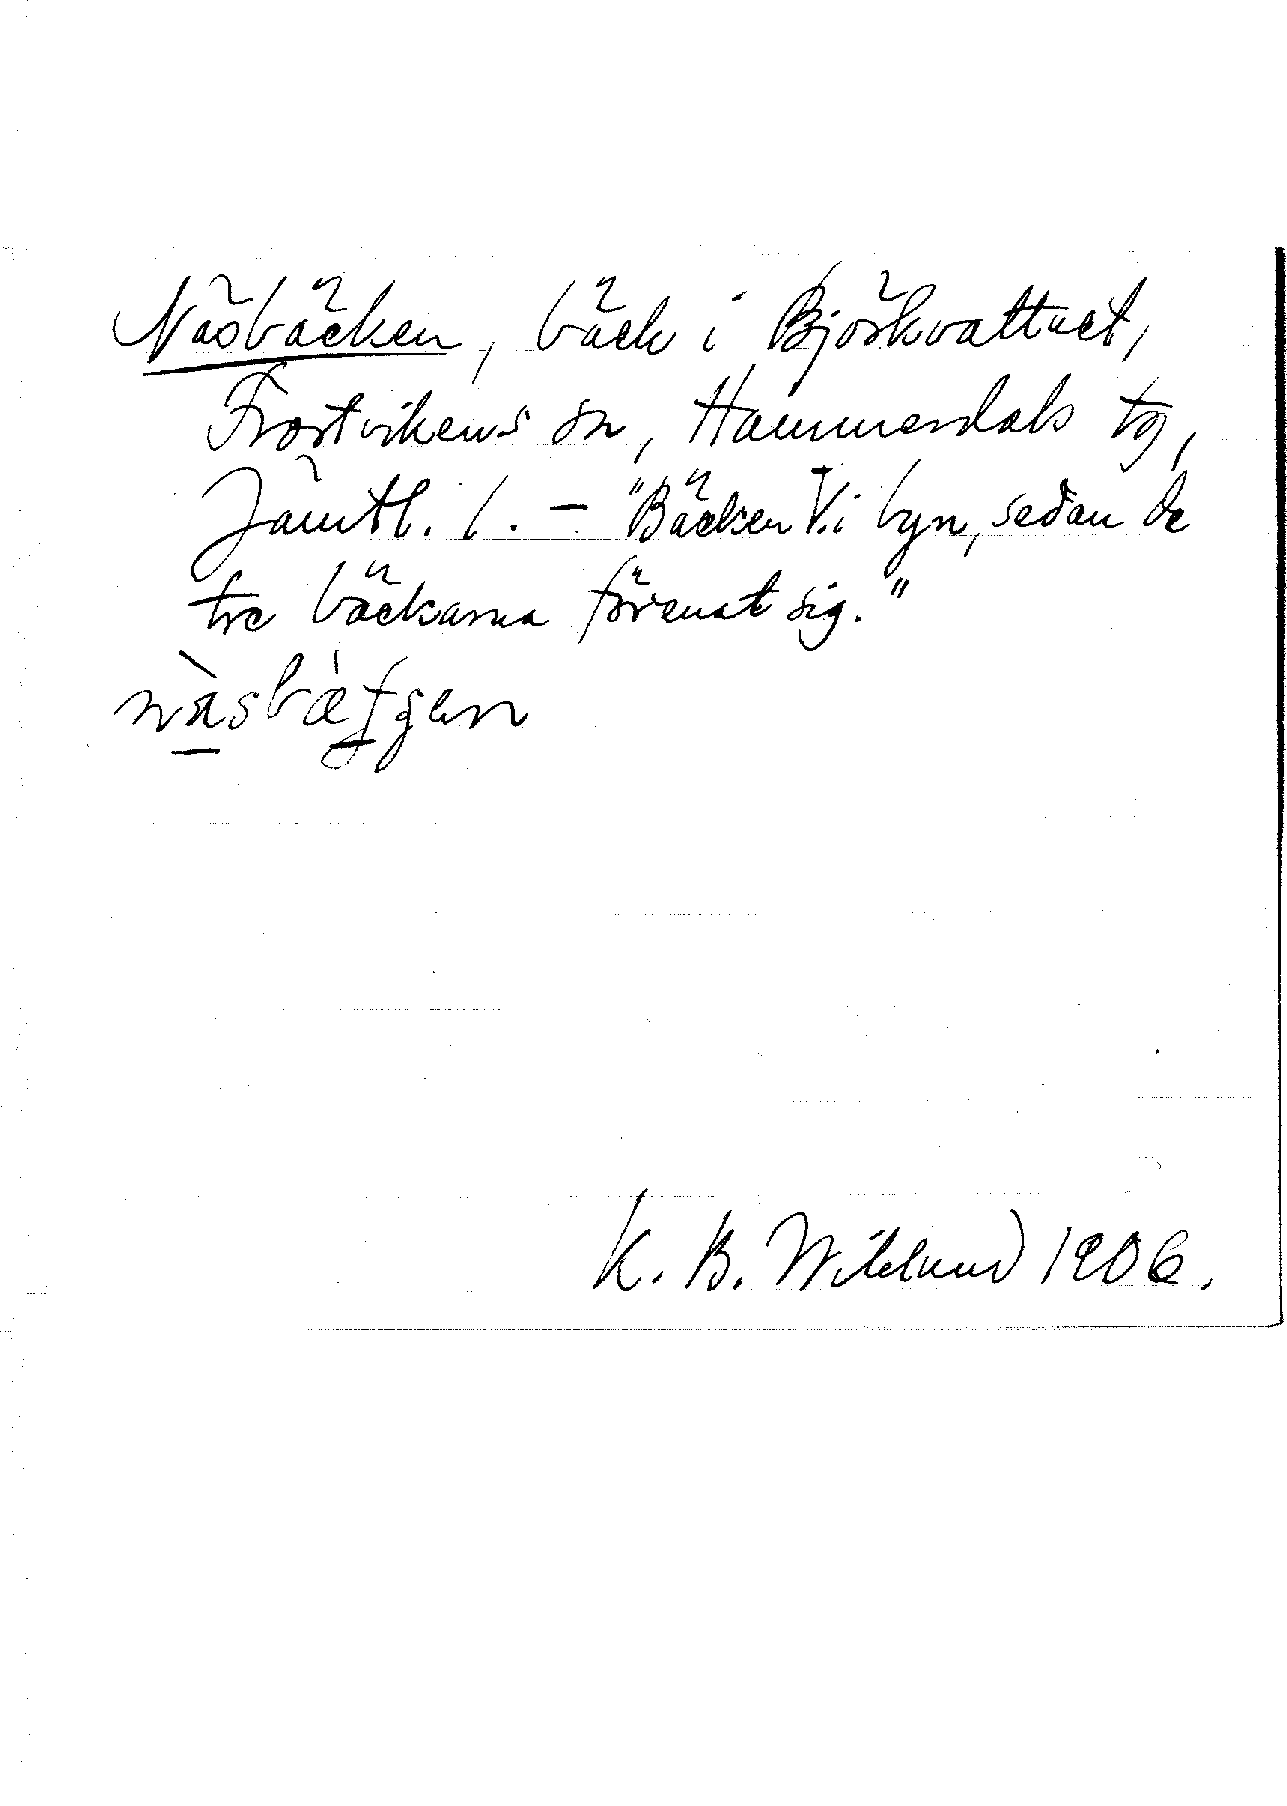 Näsbäcken, bäck i Björkvattnet,
Frostvikens sn, Hammerdals tg,
Jämtl. l. – "Bäcken V. i byn, sedan de
tre bäckarna förenat sig."
K. B. Wiklund 1906.